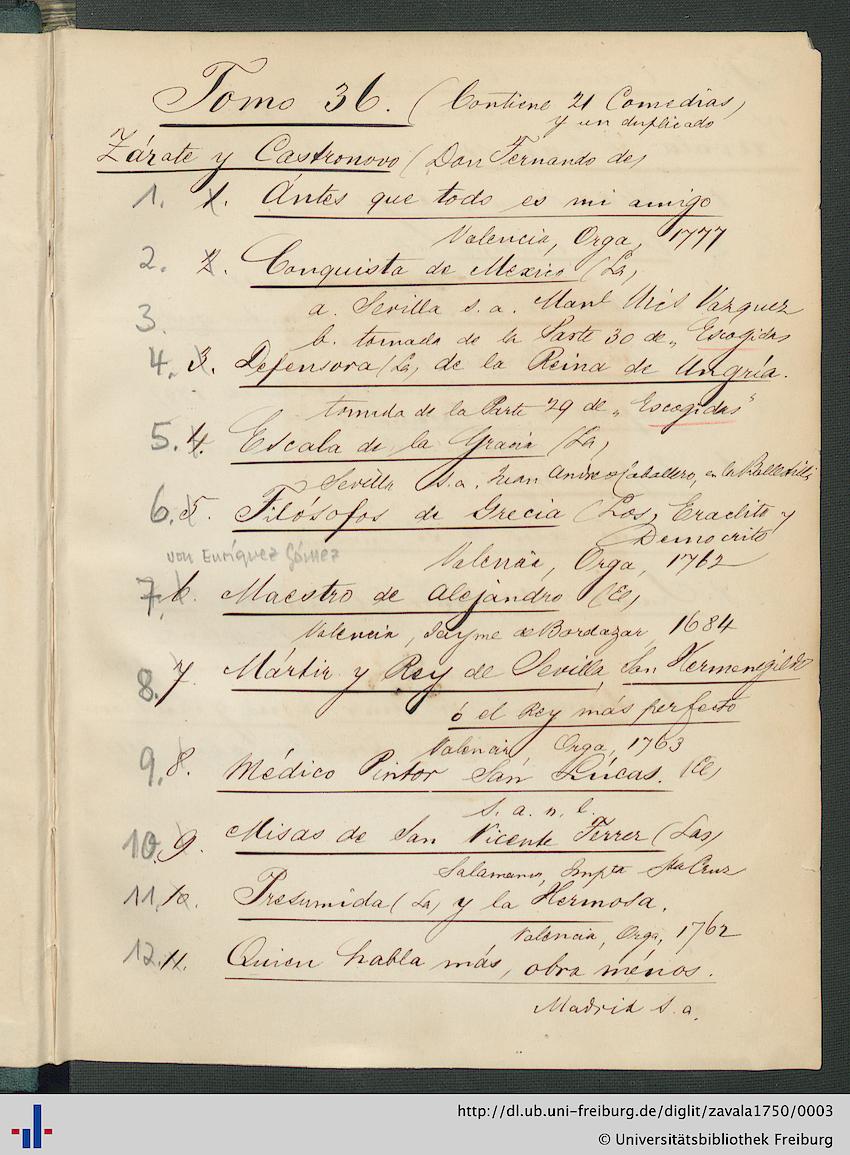 Tomo 36. (Contiene 21 Comedias)
y un duplicado
Zárate y Castronovo (Don Fernando de)
1. 1. Antes que todo es mi amigo
Valencia, Orga, 1777
2. 2. Conquista de México (La)
a. Sevilla s. a. Man.l Vázquez
3. b. tomada de la Parte 30 de „Escogidas
4. 3. Defensora (La) de la Reina de Ungría.
tomada de la Parte 29 de „Escogidas"
5. 4. Escala de la Gracia (La)
Sevilla s. a. Juan Caballero, en la
6. 5. Filósofos de Grecia (Los) Eraclito y
Demócrito
von Enríquez Gómez
Valencia, Orga, 1762
7. 6. Maestro de Alejandro (El)
Valencia, Jayme de Bordazar 1684
8. 7. Mártir y Rey de Sevilla, San Hermenegildo
ó el Rey más perfecto
Valencia Orga, 1763
9. 8. Médico Pintor San Lúcas. (El)
s. a. n. l.
10. 9. Misas de San Vicente Ferrer (Las)
Salamanca, Impta Sta Cruz
11. 10. Presumida (La) y la Hermosa.
Valencia, Orga, 1762
12. 11. Quien habla más, obra ménos.
Madrid s. a.
http://dl.ub.uni-freiburg.de/diglit/zavala1750/0003
© Universitätsbibliothek Freiburg